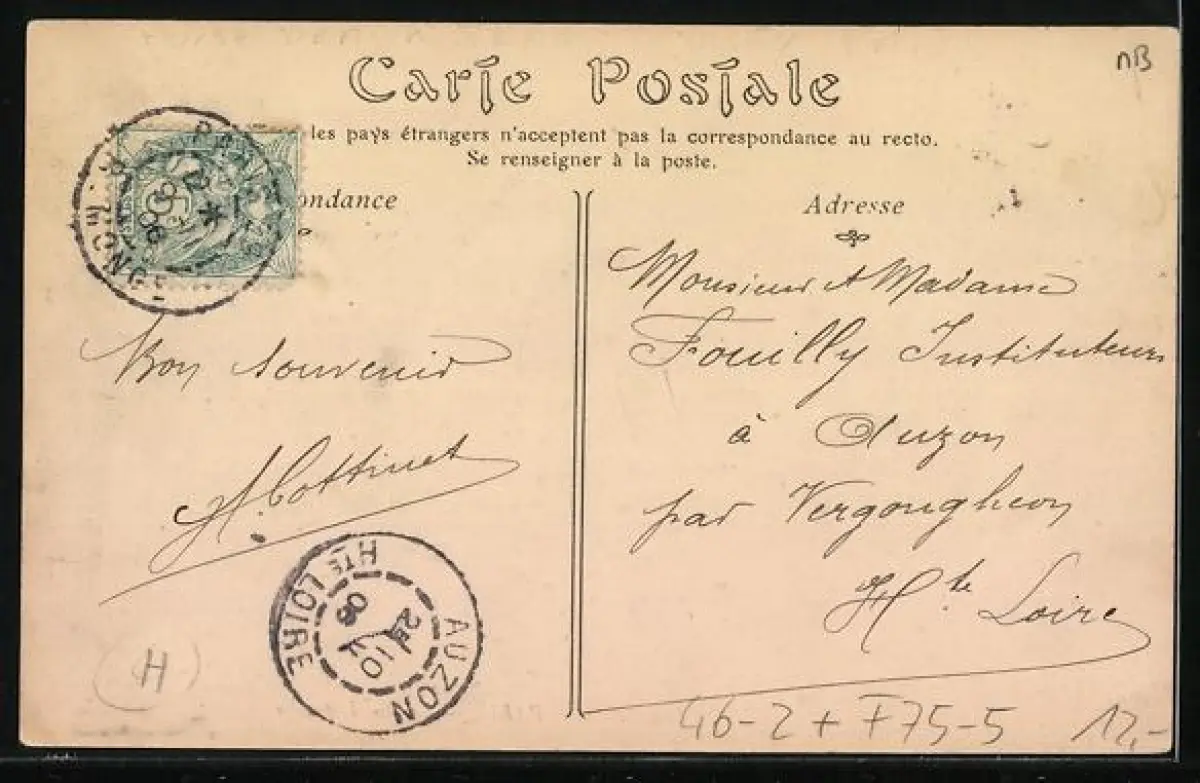 nB
Carte Postale
les pays étrangers n'acceptent pas la correspondance au recto.
Se renseigner à la poste.
ondance
Adresse
PARIS
06
Bon Souvenir
H. Cottinet
Monsieur et Madame
Fouilly Instituteurs
à Auzon
par Vergongheon
Hte Loire
AUZON
HTE LOIRE
06
(H)
46-2 + F75-5
12,-